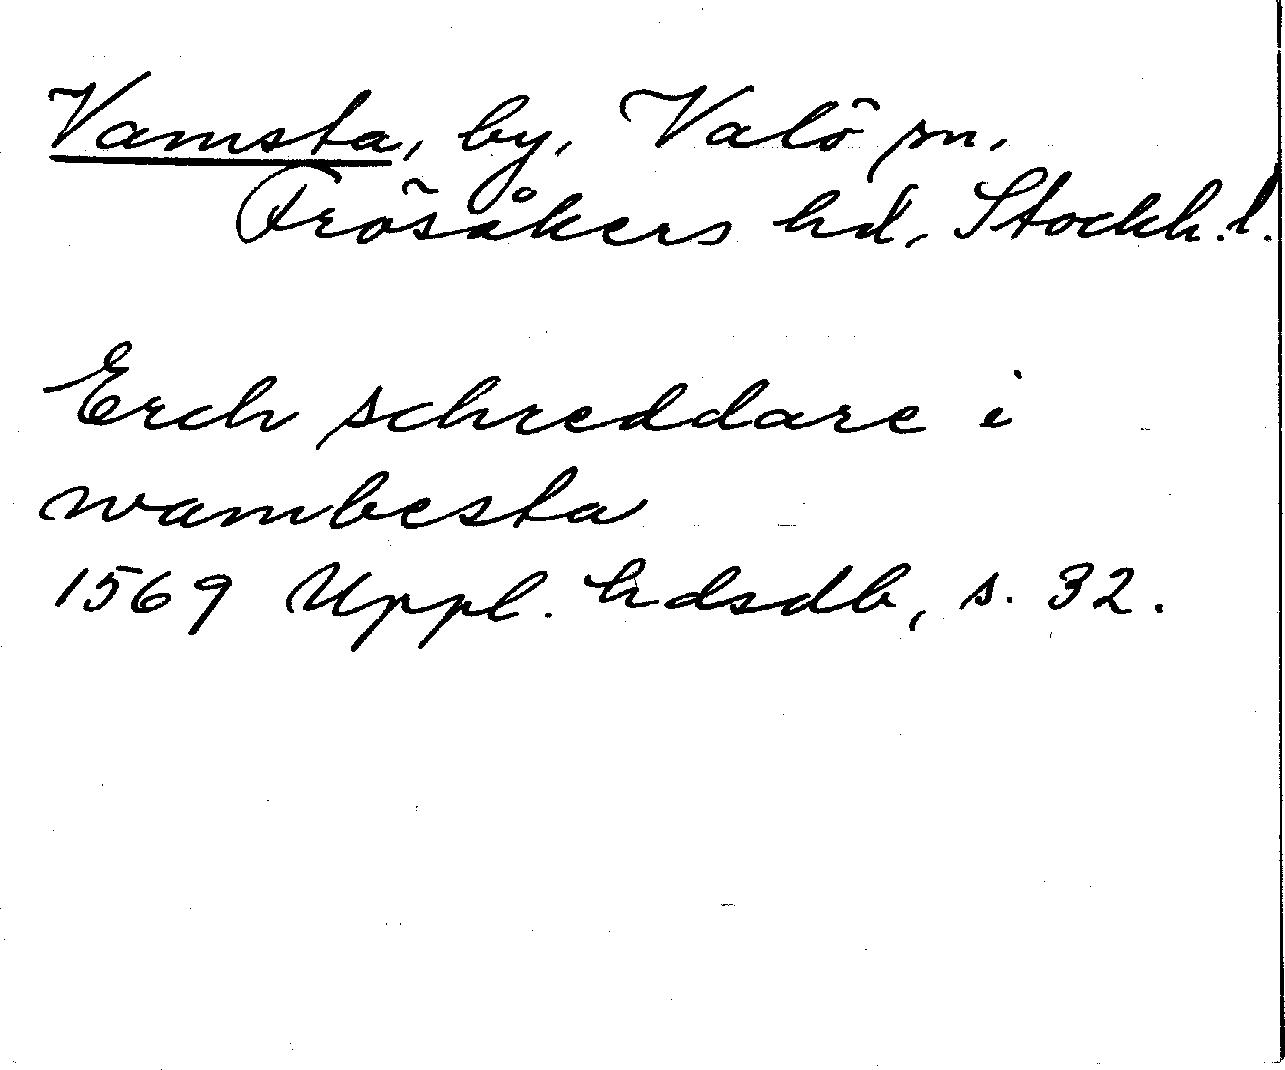 Vamsta, by, Valö sn.
Frösåkers hd, Stockh.l.
Erch schreddare i
wambesta
1569 Uppl. hdsdb, s. 32.